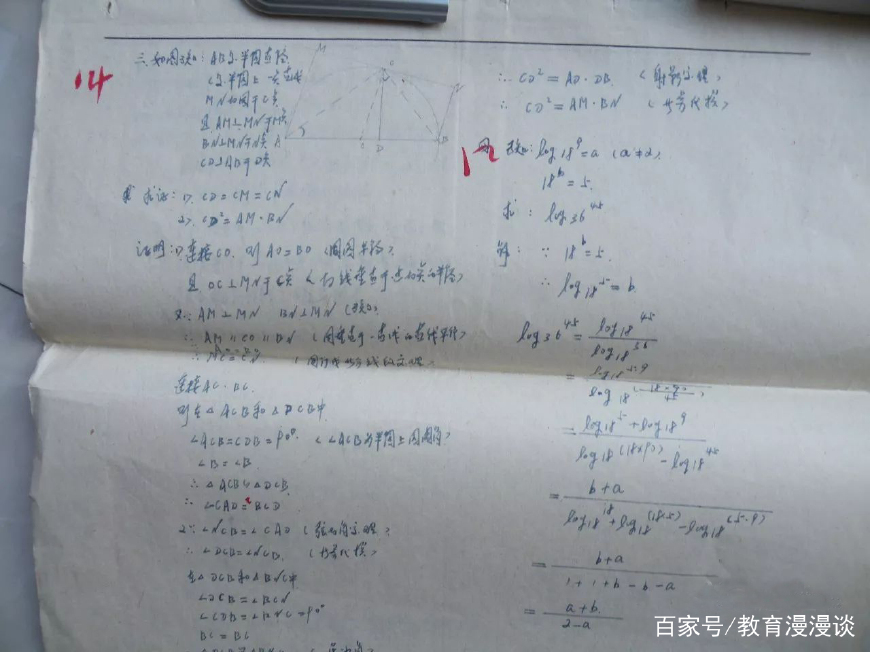 14
三、如图已知:AB为半圆直径
C为半圆上一点直线
MN切圆于C点
且AM⊥MN于M点
BN⊥MN于N点
CD⊥AB于D点
求证:1).CD=CM=CN
2).CD²=AM·BN
证明:1).连接CO.则AO=BO(同圆半径)
且OC⊥MN于C点(切线垂直于过切点的半径)
又∵AM⊥MN BN⊥MN(已知)
∴AM∥CO∥BN(同垂直于一直线的直线平行)
连接AC.BC.
则在△ACB和△DCB中
∠ACB=CDB=90°(∠ACB为半圆上圆周角)
∠B=∠B
∴△ACB∽△DCB
∴∠CAD=BCD
又∵∠NCB=∠CAD(弦切角定理)
∴∠DCB=∠NCB(等量代换)
在△DCB和△BNC中
∠DCB=∠BCN
∠CDB=∠BNC=90°
BC=BC
∴CD²=AD·DB(射影定理)
∴CD²=AM·BN(等量代换)
12
四 已知:log18⁹=a(a≠2)
18ᵇ=5.
求:log36⁴⁵
解:∵18ᵇ=5.
∴log18⁵=b
log36⁴⁵=log18⁴⁵/log18³⁶
=log18⁵·⁹/log18
=log18⁵+log18⁹/log18⁽¹⁸ˣ⁹⁰⁾-log18⁴⁵
=b+a/log18¹⁸+log18⁽¹⁸·⁵⁾-log18⁽⁵·⁹⁾
=b+a/1+1+b-b-a
=a+b/2-a
百家号/教育漫漫谈